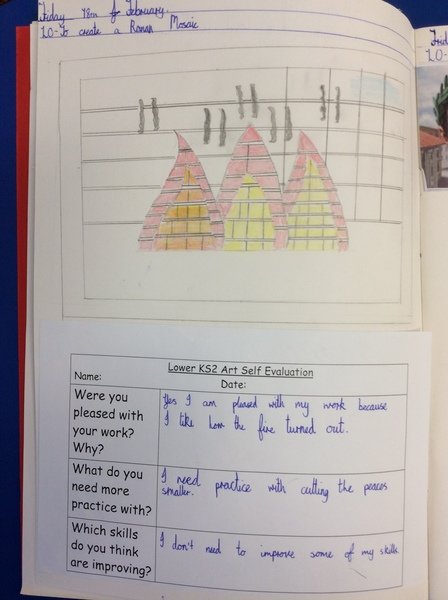 Friday 18th of February.
LO-To create a Roman Mosaic
Lower KS2 Art Self Evaluation
Name: Date:
Were you
pleased with
your work?
Why?
Yes I am pleased with my work because
I like how the fire turned out.
What do you
need more
practice with?
I need practice with cutting the peaces
smaller.
Which skills
do you think
are improving?
I don't need to improve some of my skills